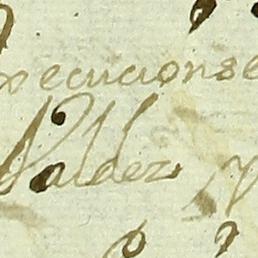 execucionse
Valdez y